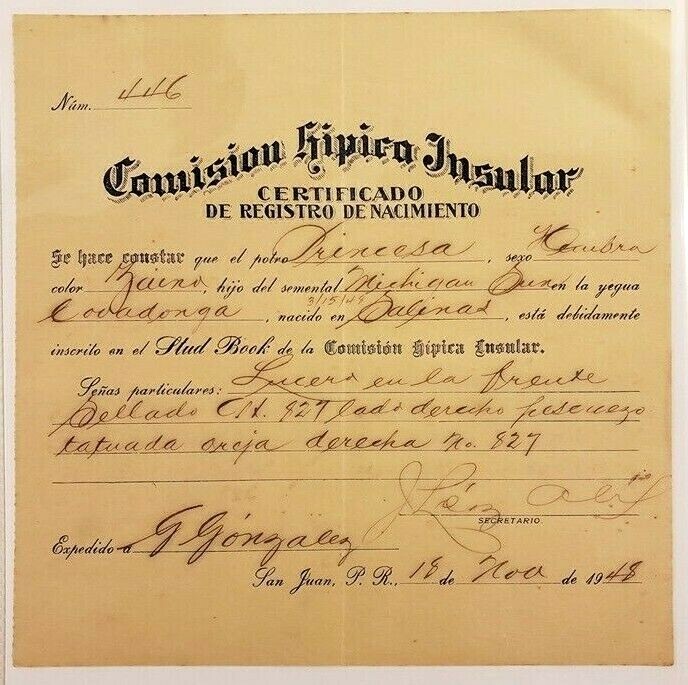 Núm. 446
Comision Hípica Insular
CERTIFICADO
DE REGISTRO DE NACIMIENTO
Se hace constar que el potro Princesa, sexo Hembra
color Zaino, hijo del semental Michigan Sun en la yegua
3/15/48
Covadonga, nacido en Salinas, está debidamente
inscrito en el Stud Book de la Comisión Hípica Insular.
Señas particulares: Lucero en la frente
Sellado CH. 827 lado derecho pescuezo
tatuada oreja derecha No. 827
SECRETARIO
Expedido a G Gónzalez
San Juan, P. R., 18 de Nov de 1948